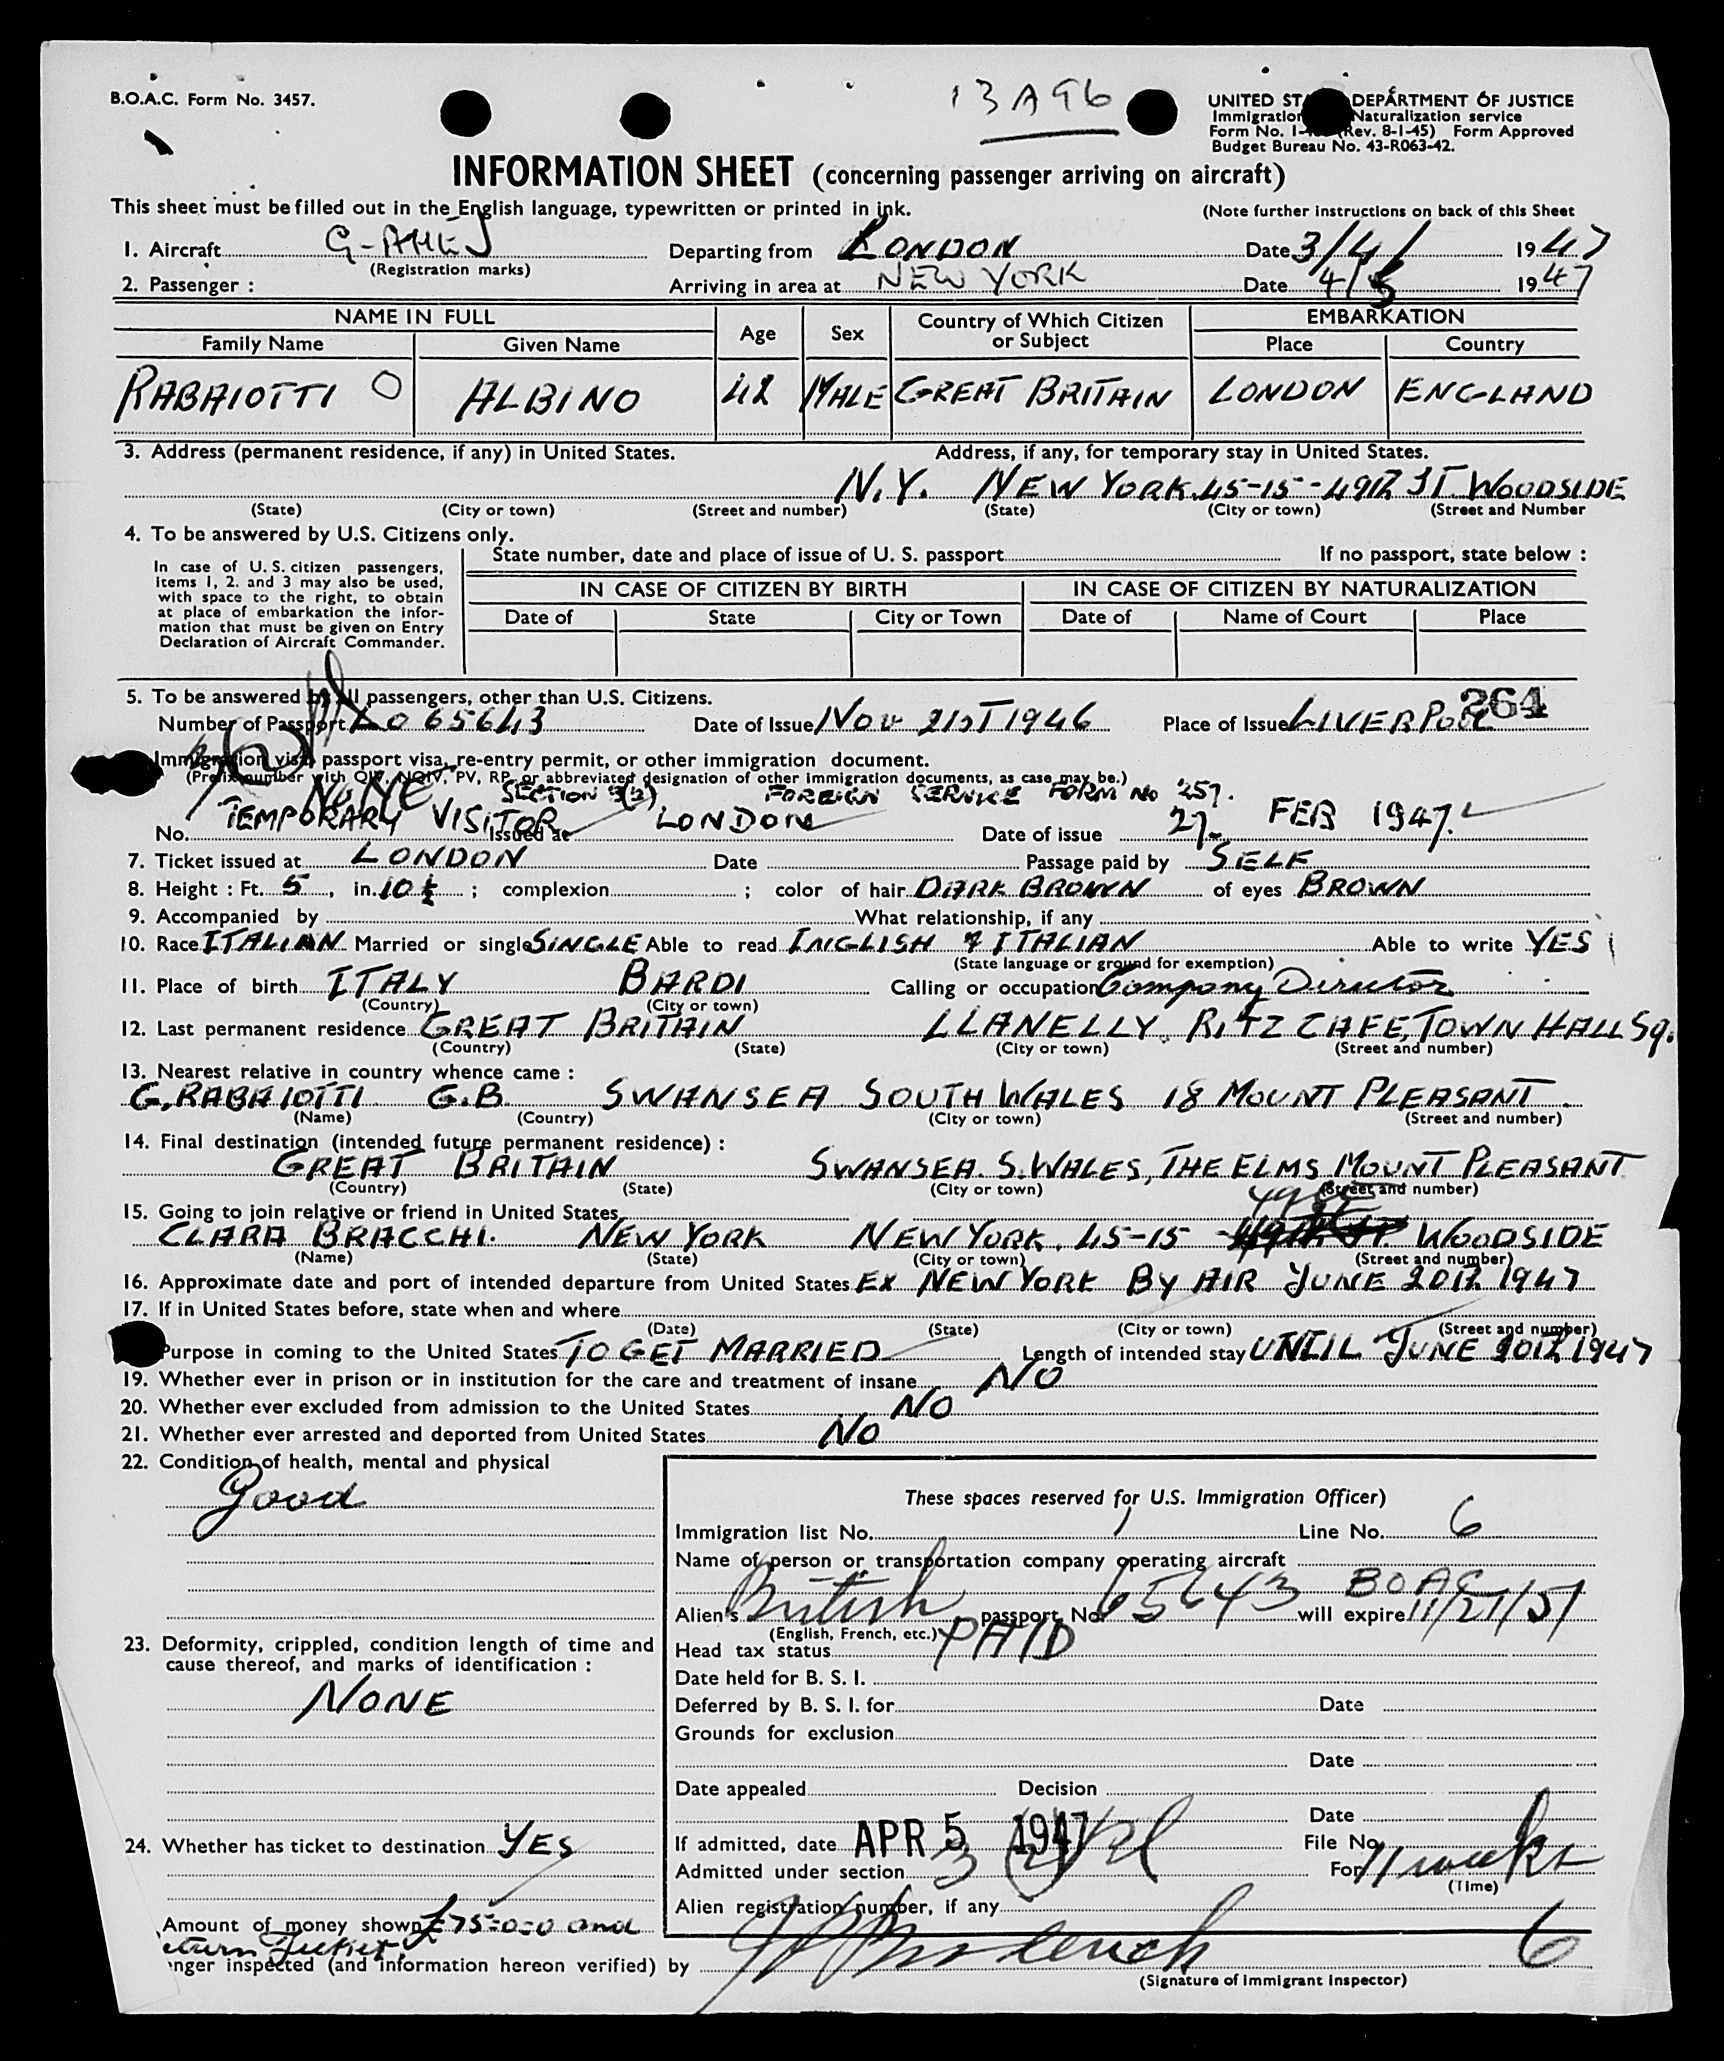 13A96
B.O.A.C. Form No. 3457.
UNITED ST DEPARTMENT OF JUSTICE
Immigration Naturalization service
Form No. I- (Rev. 8-1-45) Form Approved
Budget Bureau No. 43-R063-42.
INFORMATION SHEET (concerning passenger arriving on aircraft)
This sheet must be filled out in the English language, typewritten or printed in ink. (Note further instructions on back of this Sheet
1. Aircraft G-AHEJ Departing from LONDON Date 3/4/ 1947
(Registration marks)
2. Passenger : Arriving in area at NEW YORK Date 4/5 1947
NAME IN FULL Age Sex Country of Which Citizen or Subject EMBARKATION
Family Name Given Name Place Country
RABAIOTTI O ALBINO 42 MALE GREAT BRITAIN LONDON ENGLAND
3. Address (permanent residence, if any) in United States. Address, if any, for temporary stay in United States.
N.Y. NEW YORK. 45-15-49th ST. WOODSIDE
(State) (City or town) (Street and number) (State) (City or town) (Street and Number
4. To be answered by U.S. Citizens only.
State number, date and place of issue of U. S. passport If no passport, state below :
In case of U. S. citizen passengers,
items 1, 2. and 3 may also be used,
with space to the right, to obtain
at place of embarkation the infor-
mation that must be given on Entry
Declaration of Aircraft Commander.
IN CASE OF CITIZEN BY BIRTH IN CASE OF CITIZEN BY NATURALIZATION
Date of State City or Town Date of Name of Court Place
5. To be answered by all passengers, other than U.S. Citizens. 264
Number of Passport Lo 65643 Date of Issue Nov 21ST 1946 Place of Issue LIVERPOOL
Immigration visa, passport visa, re-entry permit, or other immigration document.
(Prefix number with QIV, NQIV, PV, RP, or abbreviated designation of other immigration documents, as case may be.)
NONE SECTION 3(2) FOREIGN SERVICE FORM No 257.
TEMPORARY VISITOR LONDON 27. FEB 1947.
No. Issued at Date of issue
7. Ticket issued at LONDON Date Passage paid by SELF
8. Height : Ft. 5, in. 10½ ; complexion ; color of hair DARK BROWN of eyes BROWN
9. Accompanied by What relationship, if any
10. Race ITALIAN Married or single SINGLE Able to read ENGLISH & ITALIAN Able to write YES
(State language or ground for exemption)
11. Place of birth ITALY BARDI Calling or occupation Company Director
(Country) (City or town)
12. Last permanent residence GREAT BRITAIN LLANELLY RITZ CAFE, TOWN HALL Sq.
(Country) (State) (City or town) (Street and number)
13. Nearest relative in country whence came :
G. RABAIOTTI G.B. SWANSEA SOUTH WALES 18 MOUNT PLEASANT.
(Name) (Country) (City or town) (Street and number)
14. Final destination (intended future permanent residence) :
GREAT BRITAIN SWANSEA. S. WALES, THE ELMS MOUNT PLEASANT
(Country) (State) (City or town) (Street and number)
15. Going to join relative or friend in United States
CLARA BRACCHI. NEW YORK NEW YORK. 45-15 WOODSIDE
(Name) (State) (City or town) (Street and number)
16. Approximate date and port of intended departure from United States Ex NEW YORK By AIR JUNE 20th 1947
17. If in United States before, state when and where
(Date) (State) (City or town) (Street and number)
Purpose in coming to the United States TO GET MARRIED Length of intended stay UNTIL JUNE 20th 1947
19. Whether ever in prison or in institution for the care and treatment of insane NO
20. Whether ever excluded from admission to the United States NO
21. Whether ever arrested and deported from United States NO
22. Condition of health, mental and physical
Good
These spaces reserved for U.S. Immigration Officer)
Immigration list No. 1 Line No. 6
Name of person or transportation company operating aircraft
BOAC
Alien's British passport No. 65643 will expire 11/21/51
(English, French, etc.)
Head tax status PAID
Date held for B. S. I.
Deferred by B. S. I. for Date
Grounds for exclusion
Date
Date appealed Decision
Date
If admitted, date APR 5 1947 File No.
Admitted under section 3(2) For 11 weeks
(Time)
Alien registration number, if any
23. Deformity, crippled, condition length of time and
cause thereof, and marks of identification :
NONE
24. Whether has ticket to destination YES
Amount of money shown £75-0-0 and
eturn Ticket.
nger inspected (and information hereon verified) by 6
(Signature of Immigrant Inspector)